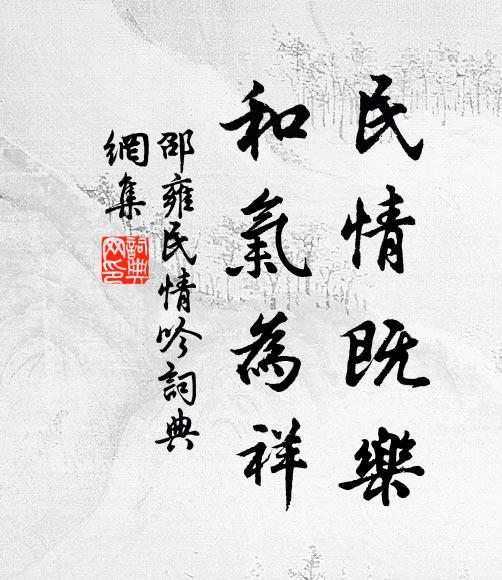 民情既樂
和氣為祥
邵雍民情吟詞典
網集
詞典網印